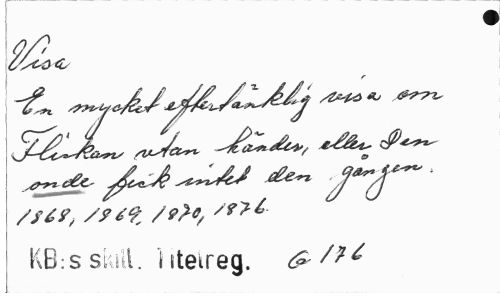 Visa
En mycket eftertänklig visa om
Flickan utan händer, eller Den
onde fick intet den gången.
1868, 1869, 1870, 1876.
KB:s skill. Titelreg. G 176